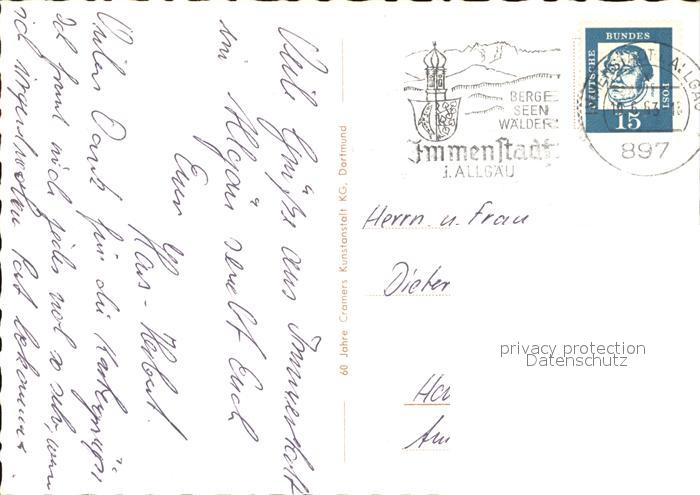 Viele Grüße aus Immenstadt
im Allgäu sendt Euch
Euer
Hans-Herbert.
Vielen Dank für die Kartengrüße
Ich freue mich jedes mal so sehr, wenn
ich irgendwoher Post bekomme.
60 Jahre Cramers Kunstanstalt KG, Dortmund
BERGE
SEEN
WÄLDER
Immenstadt
i. ALLGÄU
DEUTSCHE
BUNDES
POST
15
897
Herrn u. Frau
Dieter
privacy protection
Datenschutz